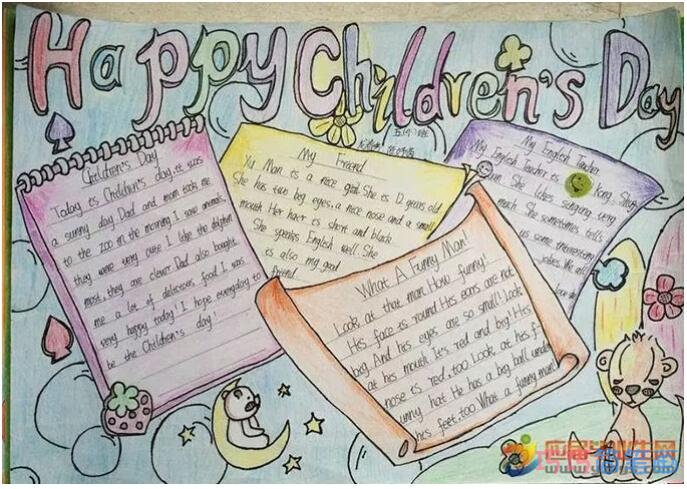 Happy Children's Day
Children's Day
Today is Children's day, it was
a sunny day. Dad and mom took me
to the zoo in the morning. I saw animals,
they were very cute. I like the dolphin
most, they are clever. Dad also bought
me a lot of delicious food. I was
very happy today. I hope everyday to
be the Children's day!
五(六)班
My Friend
Yu Man is a nice girl. She is 12 years old
She has two big eyes, a nice nose and a small
mouth. Her hair is short and black.
She speaks English well. She
is also my good
friend.
My English Teacher
My English Teacher is Kong
She likes singing very
much. She sometimes tells
us some interesting
jokes. We all
love
What A Funny Man!
Look at that man. How funny!
His face is round. His ears are not
big. And his eyes are so small! Look
at his mouth. It's red and big! His
nose is red, too. Look at his f-
unny hat. He has a big ball under
his feet, too. What a funny man!